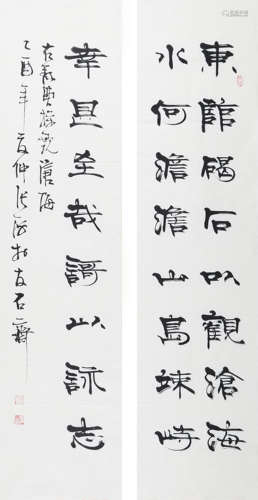 東臨碣石以觀滄海
水何澹澹山島竦峙
幸甚至哉謌以詠志
右錄曹操觀滄海
乙酉年夏仲 於友石齋